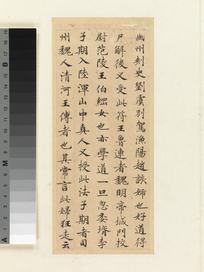 幽州刺史劉虞別駕漁陽趙該婦也好道得
尸解後又受此符王魯連者魏明帝城門校
尉范陵王伯綱女也亦學道一旦忽委壻李
子期入陸渾山中真人又授此法子期者司
州魏人清河王傳者也其常言此婦狂走云